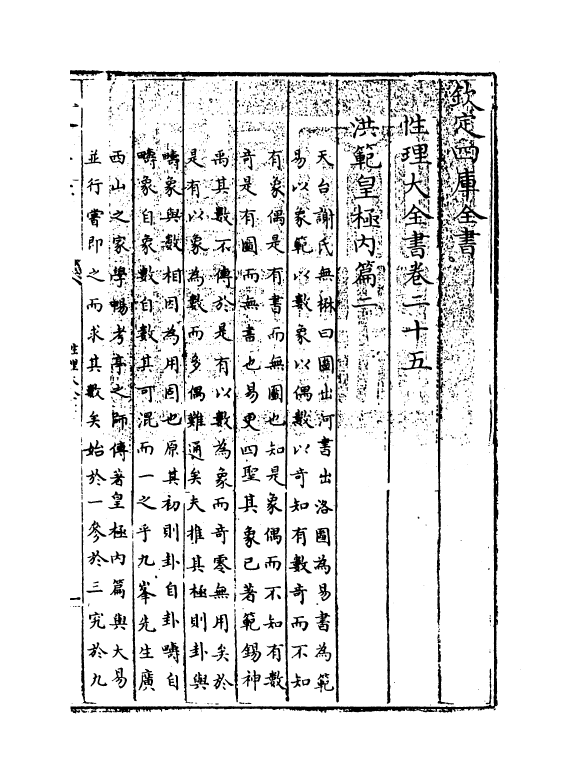 欽定四庫全書
性理大全書卷二十五
洪範皇極內篇二
天台謝氏無楙曰圖出河書出洛圖為易書為範
易以象範以數象以偶數以奇知有數奇而不知
有象偶是有書而無圖也知是象偶而不知有數
奇是有圖而無書也易更四聖其象已著範錫神
禹其數不傳於是有以數為象而奇零無用矣於
是有以象為數而多偶難通矣夫推其極則卦與
疇象與數相因為用固也原其初則卦自卦疇自
疇象自象數自數其可混而一之乎九峯先生廣
西山之家學暢考亭之師傳著皇極內篇與大易
並行嘗即之而求其數矣始於一參於三究於九
性理大全
一